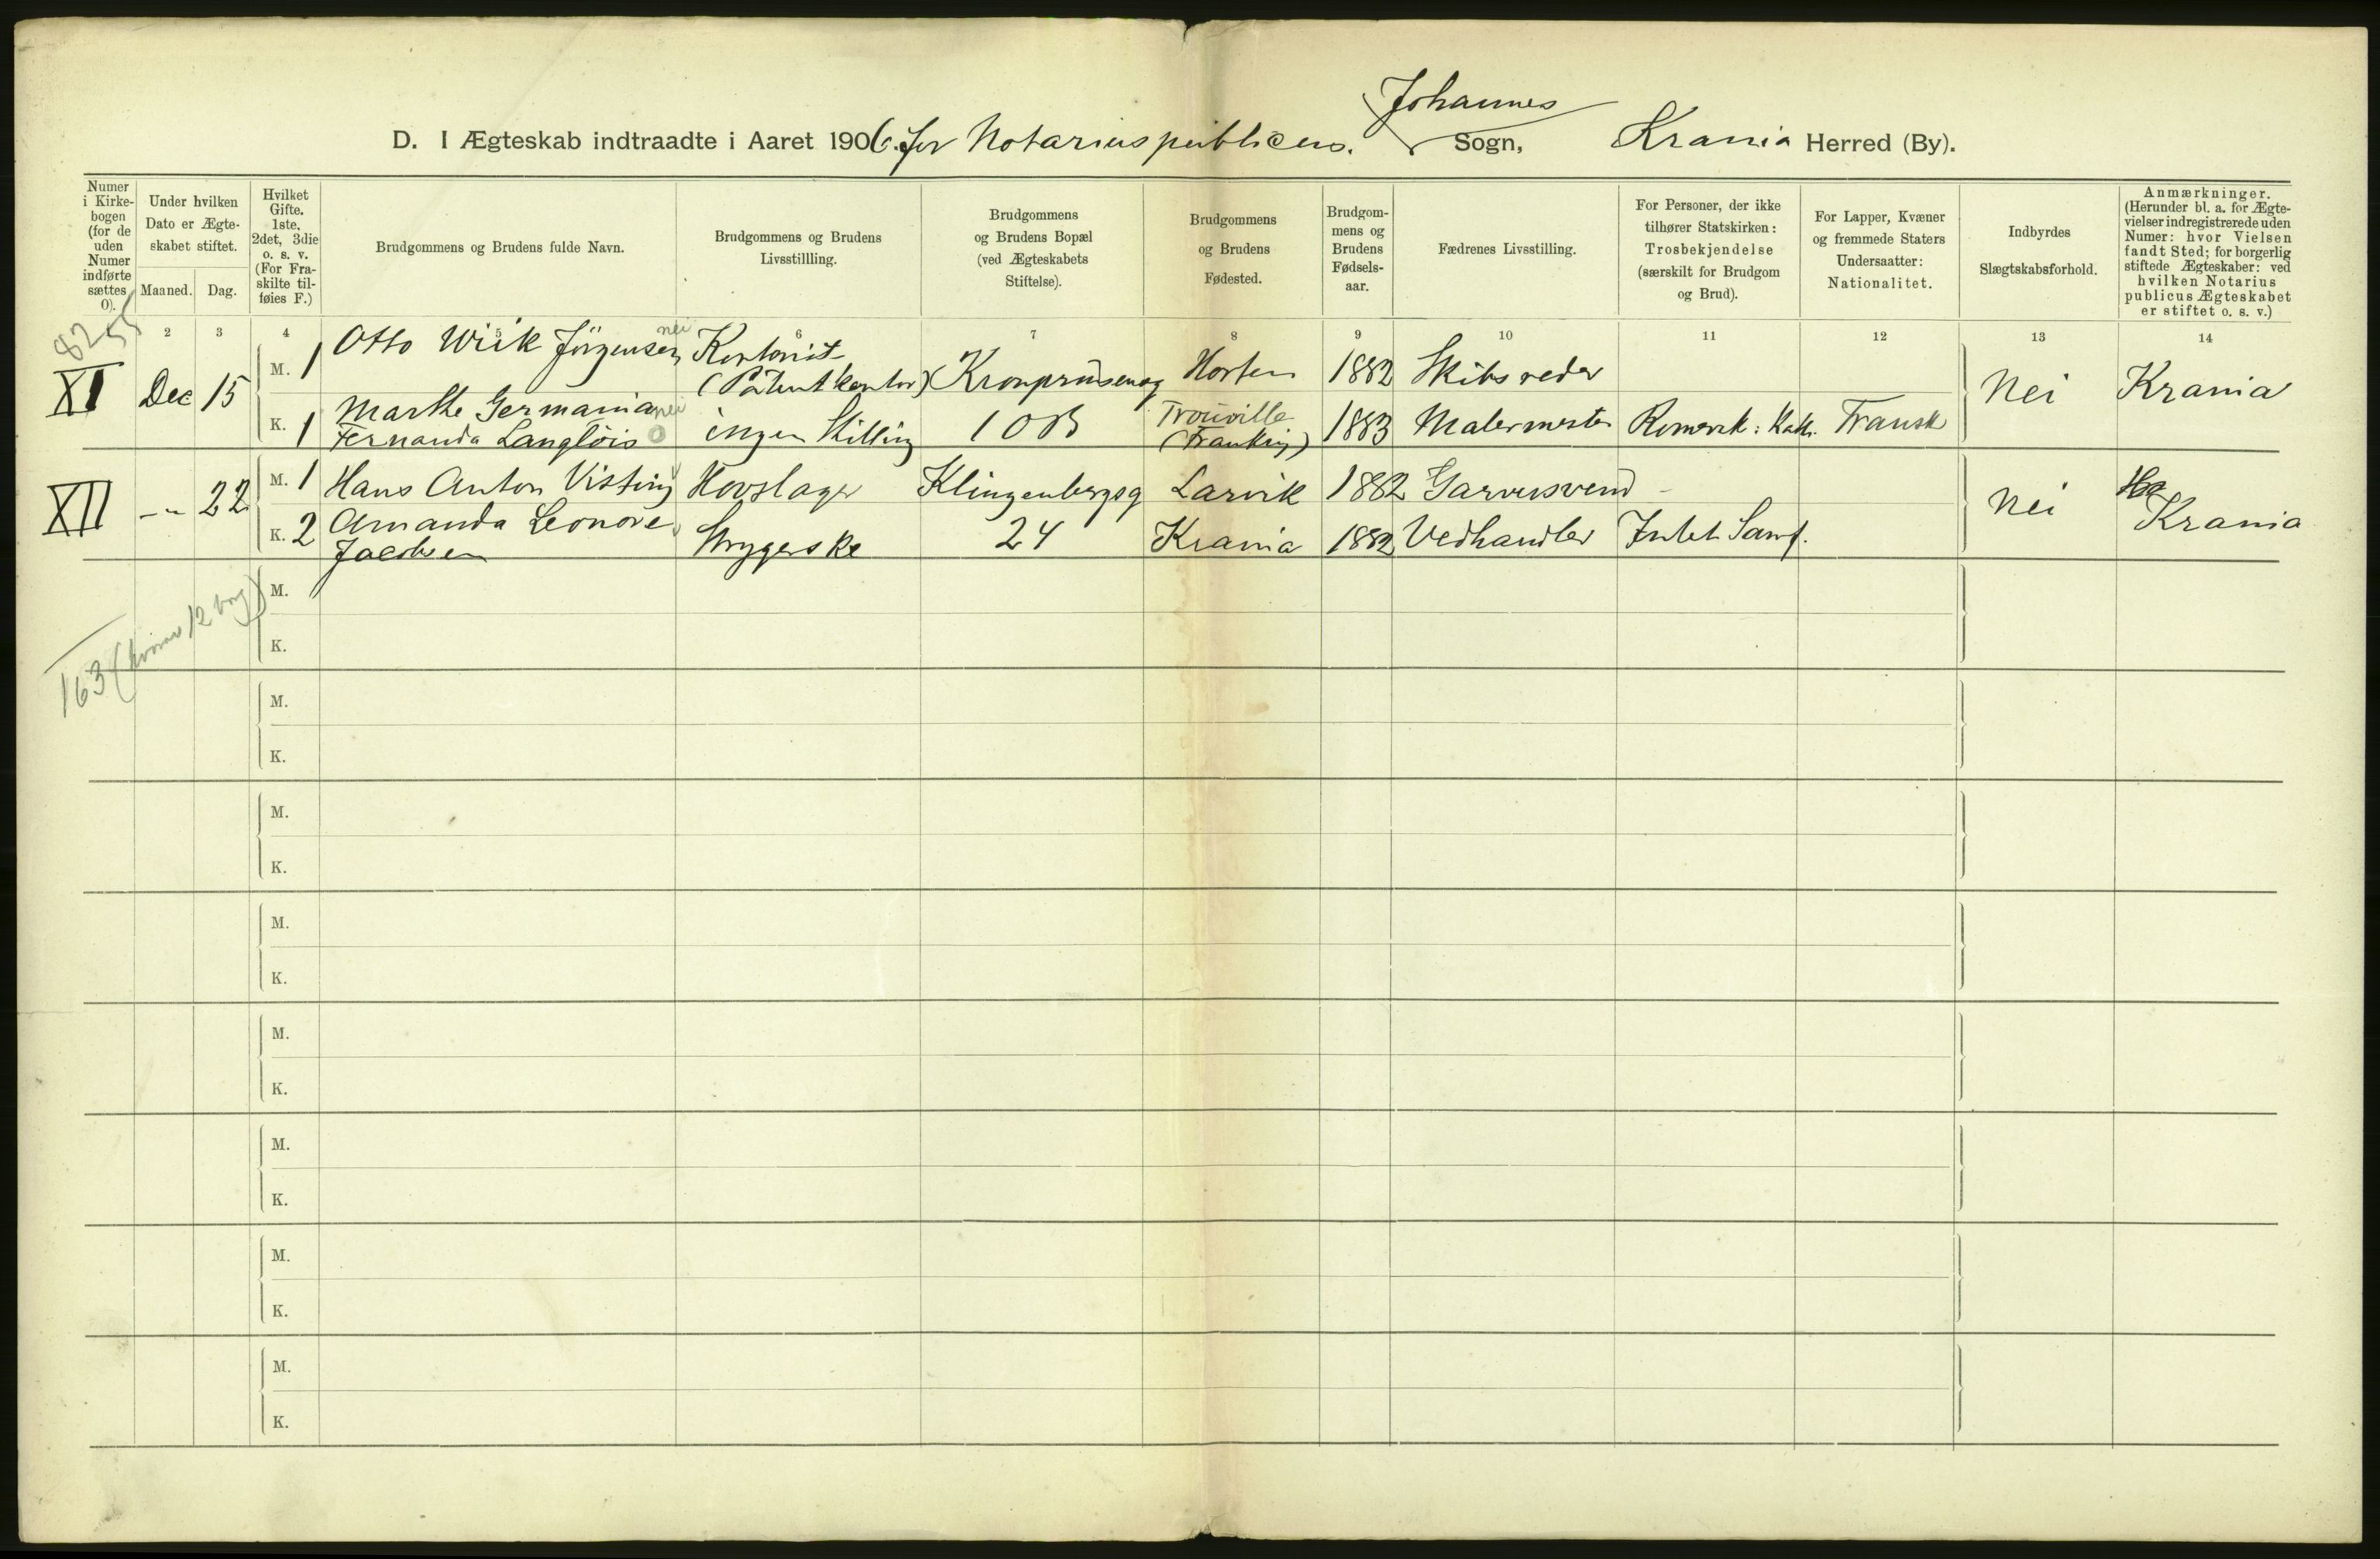 Johannes
D. I Ægteskab indtraadte i Aaret 1906. for Notarius publicus. Sogn, Krania Herred (By).
Numer i Kirke-bogen (for de uden Numer indførte sættes 0).
Under hvilken Dato er Ægte-skabet stiftet.
Maaned. Dag.
Hvilket Gifte. 1ste. 2det, 3die o. s. v. (For Fra-skilte til-føies F.)
Brudgommens og Brudens fulde Navn.
Brudgommens og Brudens Livsstillling.
Brudgommens og Brudens Bopæl (ved Ægteskabets Stiftelse).
Brudgommens og Brudens Fødested.
Brudgom-mens og Brudens Fødsels-aar.
Fædrenes Livsstilling.
For Personer, der ikke tilhører Statskirken: Trosbekjendelse (særskilt for Brudgom og Brud).
For Lapper, Kvæner og fremmede Staters Undersaatter: Nationalitet.
Indbyrdes Slægtskabsforhold.
Anmærkninger. (Herunder bl. a. for Ægte-vielser indregistrerede uden Numer: hvor Vielsen fandt Sted; for borgerlig stiftede Ægteskaber: ved hvilken Notarius publicus Ægteskabet er stiftet o. s. v.)
2 3 4 5 6 7 8 9 10 11 12 13 14
82 55
XI Dec 15
M. 1 Otto Wiik Jörgensen nei Kontorist (Patentkontor) Kronprinseng Horten 1882 Skibsreder
K. 1 Marthe Germania nei Fernanda Langlöis ingen Stilling 10B Trouville (Frankrig) 1883 Malermester Romersk: Kath. Fransk
Nei Krania
XII -"- 22
M. 1 Hans Anton Visting Hovslager Klingenbergsg Larvik 1882 Garversvend -
K. 2 Amanda Leonore Jacobsen Strygerske 24 Krania 1882 Vedhandler Intet Samf.
Nei Krania
163 (hvorav 12 borg)
M.
K.
M.
K.
M.
K.
M.
K.
M.
K.
M.
K.
M.
K.
M.
K.